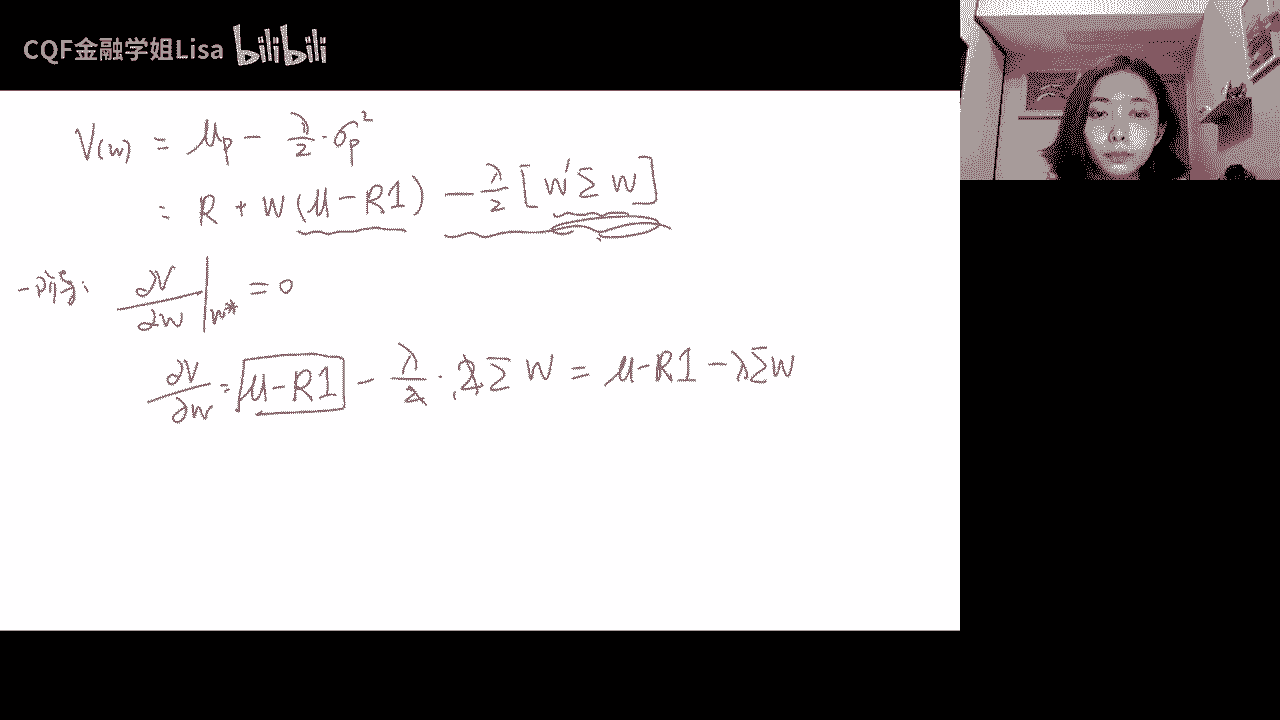 CQF金融学姐Lisa bilibili
V(w) = μp - λ/2 · σp²
= R + w(μ - R1) - λ/2 [w'Σw]
一阶导: ∂V/∂w |w* = 0
∂V/∂w = μ - R1 - λ/2 · 2Σw = μ - R1 - λΣw